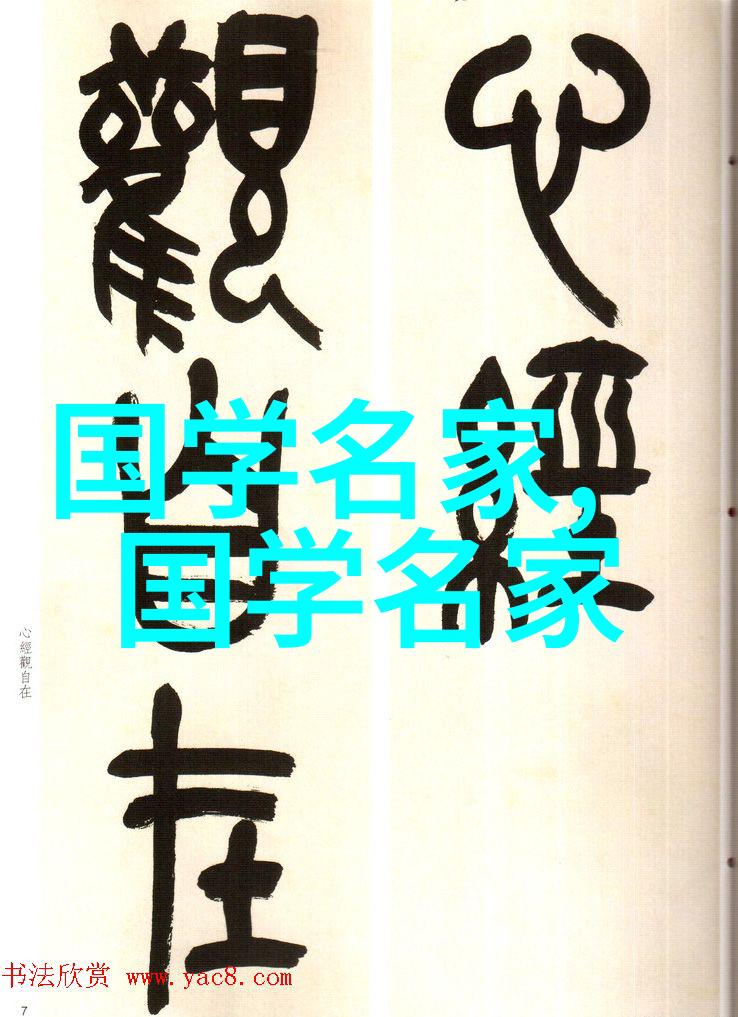 心經
觀自在
国学名家,
国学名家
心經觀自在
书法欣赏 www.yac8.com
7